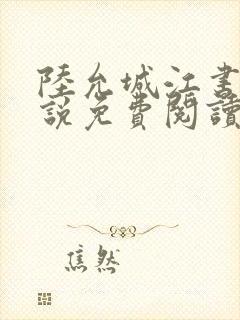 陸允城江書
說免費閱讀
焦然